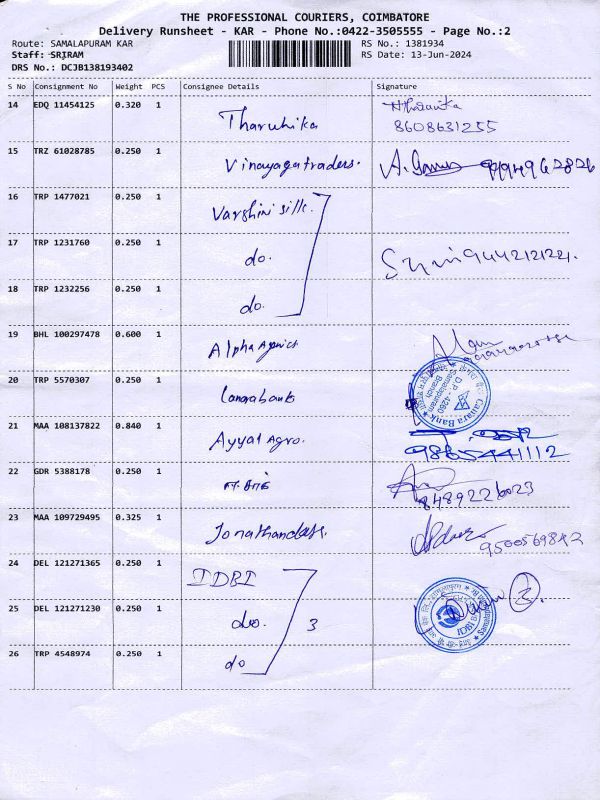 THE PROFESSIONAL COURIERS, COIMBATORE
Delivery Runsheet - KAR - Phone No.:0422-3505555 - Page No.:2
Route: SAMALAPURAM KAR RS No.: 1381934
Staff: SRIRAM RS Date: 13-Jun-2024
DRS No.: DCJB138193402
S No Consignment No Weight PCS Consignee Details Signature
14 EDQ 11454125 0.320 1 Tharuhika
8608631255
15 TRZ 61028785 0.250 1 Vinayagatraders. A.
16 TRP 1477021 0.250 1 Varshini silk.
17 TRP 1231760 0.250 1 do.
18 TRP 1232256 0.250 1 do.
19 BHL 100297478 0.600 1 Alpha Agnics
20 TRP 5570307 0.250 1 Canarabank Canara Bank D.P.-4260 Samalapuram Branch
21 MAA 108137822 0.840 1 Ayyal Agro.
9865441112
22 GDR 5388178 0.250 1
8489226023
23 MAA 109729495 0.325 1 Jonathandass.
9500569842
24 DEL 121271365 0.250 1 IDBI
25 DEL 121271230 0.250 1 do. 3 IDBI 3.
26 TRP 4548974 0.250 1 do